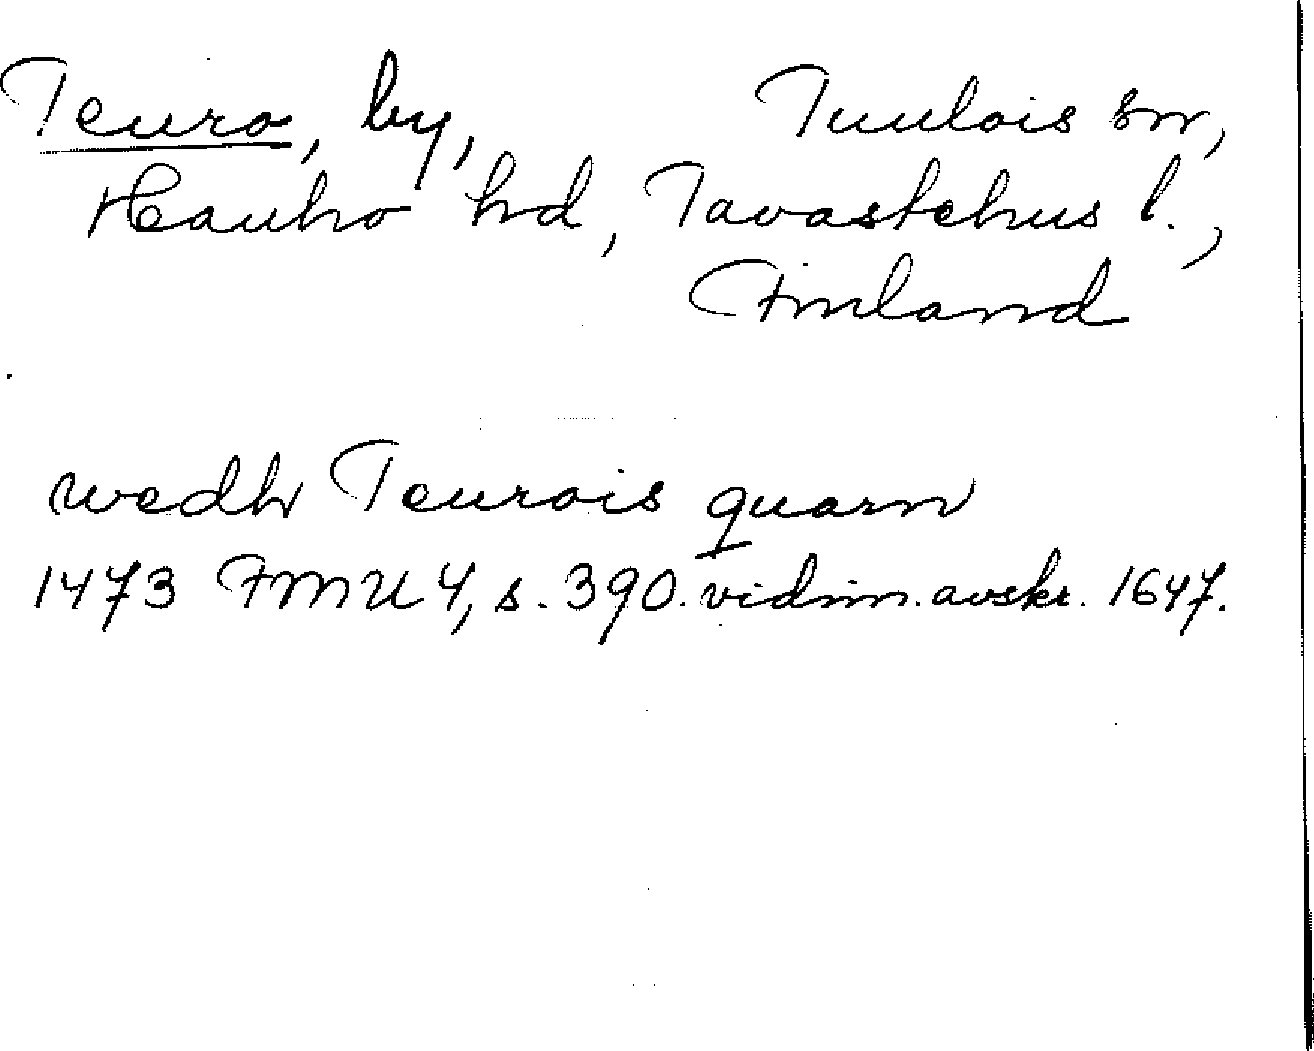 Teuro, by, Tuulois sn,
Hauho hd, Tavastehus l.,
Finland
wedh Teurois quarn
1473 FMU 4, s. 390. vidim. avskr. 1647.